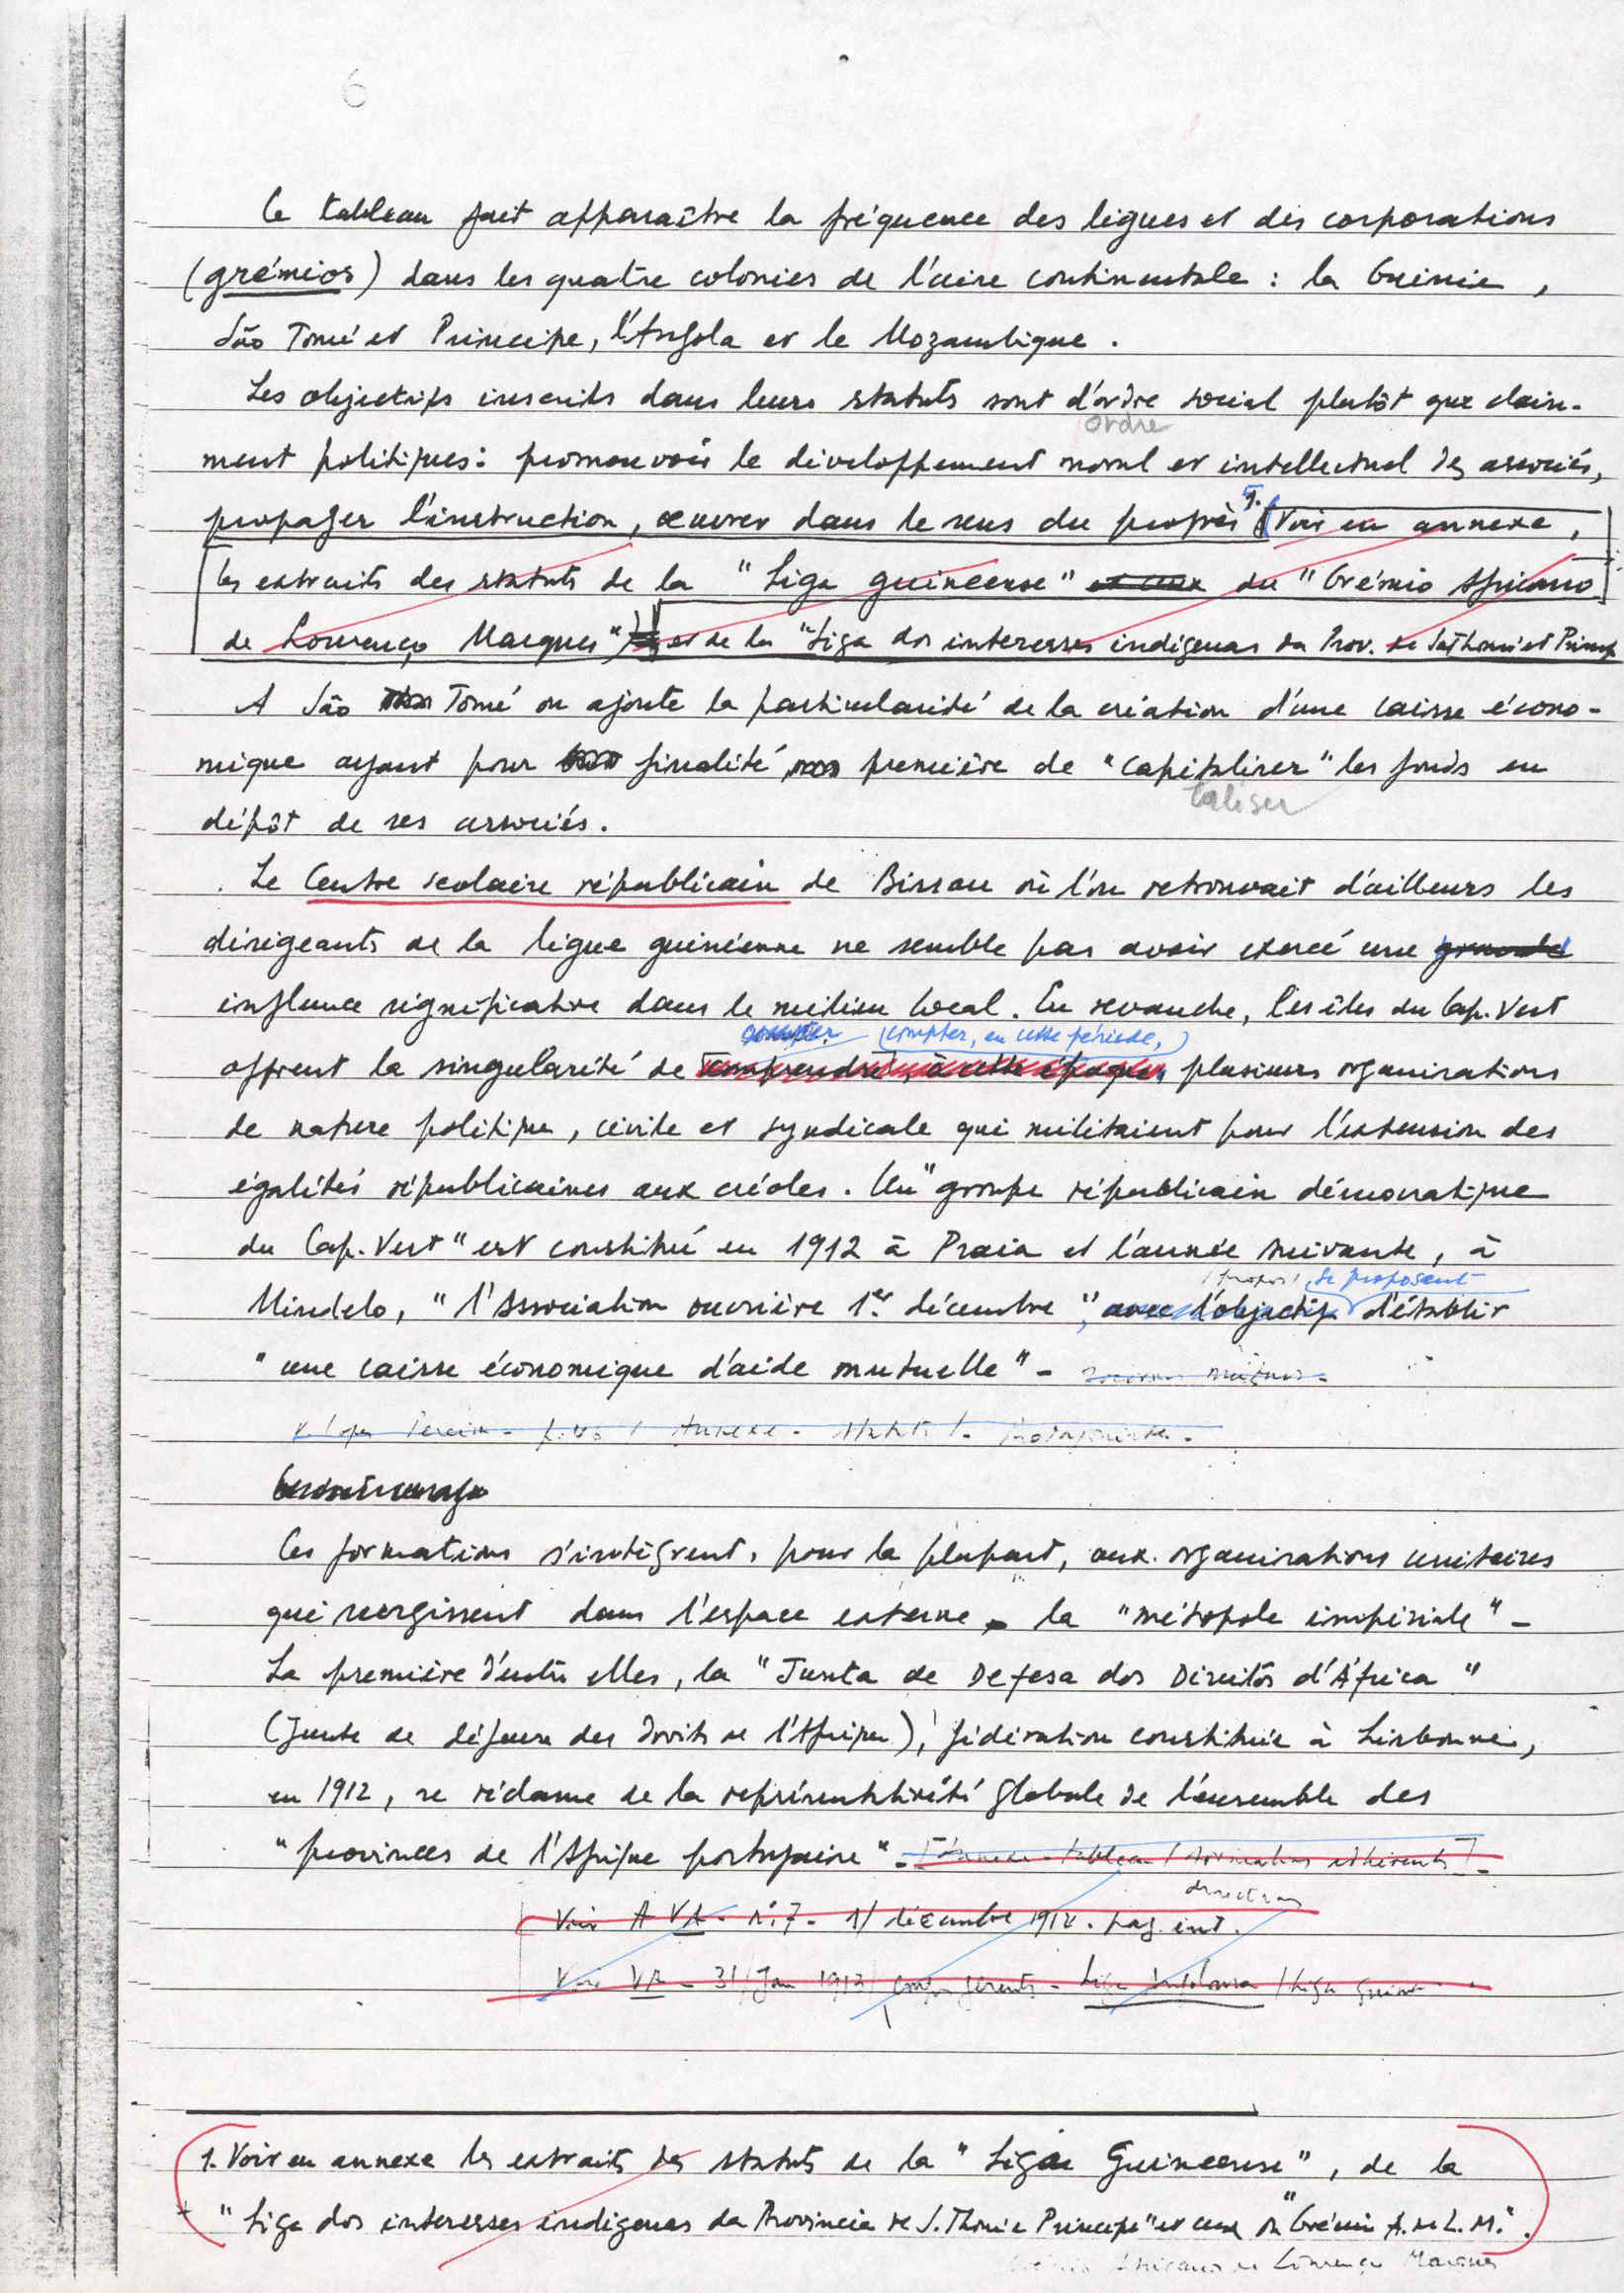 6
Ce tableau fait apparaître la fréquence des ligues et des corporations
(grémios) dans les quatre colonies de l'aire continentale : la Guinée,
São Tomé et Principe, l'Angola et le Mozambique.
Les objectifs inscrits dans leurs statuts sont d'ordre social plutôt que claire-
ordre
ment politiques : promouvoir le développement moral et intellectuel des associés,
propager l'instruction, œuvrer dans le sens du progrès 1. (Voir en annexe,
les extraits des statuts de la "Liga guineense" et ceux du "Grémio Africano
de Lourenço Marques") et de la "Liga dos interesses indigenas da Prov. de S. Thomé et Princip
A São Tomé on ajoute la particularité de la création d'une caisse écono-
mique ayant pour finalité première de "capitaliser" les fonds en
taliser
dépôt de ses associés.
Le Centre scolaire républicain de Bissau où l'on retrouvait d'ailleurs les
dirigeants de la ligue guinéenne ne semble pas avoir exercé une grande
influence significative dans le milieu local. En revanche, les îles du Cap-Vert
compter (compter, en cette période,)
offrent la singularité de comprendre, à cette époque, plusieurs organisations
de nature politique, civile et syndicale qui militaient pour l'extension des
égalités républicaines aux créoles. Un "groupe républicain démocratique
du Cap-Vert" est constitué en 1912 à Praia et l'année suivante, à
/propos/ se proposent
Mindelo, "l'Association ouvrière 1er décembre", avec l'objectif d'établir
"une caisse économique d'aide mutuelle" -
Annexe - statuts
Ces formations s'intègrent, pour la plupart, aux organisations unitaires
qui surgissent dans l'espace externe - la "métropole impériale" -
La première d'entre elles, la "Junta de Defesa dos Direitos d'África"
(Junte de défense des droits de l'Afrique), fédération constituée à Lisbonne,
en 1912, se réclame de la représentativité globale de l'ensemble des
"provinces de l'Afrique portugaise" - [Annexe - tableau / formations adhérents] -
Voir A VR - nº 7 - 1/ décembre 1912 - pag. int.
Voir VR - 31/Jan 1913 / - Liga Angolana / Liga
1. Voir en annexe les extraits des statuts de la "Liga Guineense", de la
"Liga dos interesses indigenas da Provincia de S. Thomé e Principe" et ceux du "Grémio A. de L. M.".
Grémio Africano de Lourenço Marques